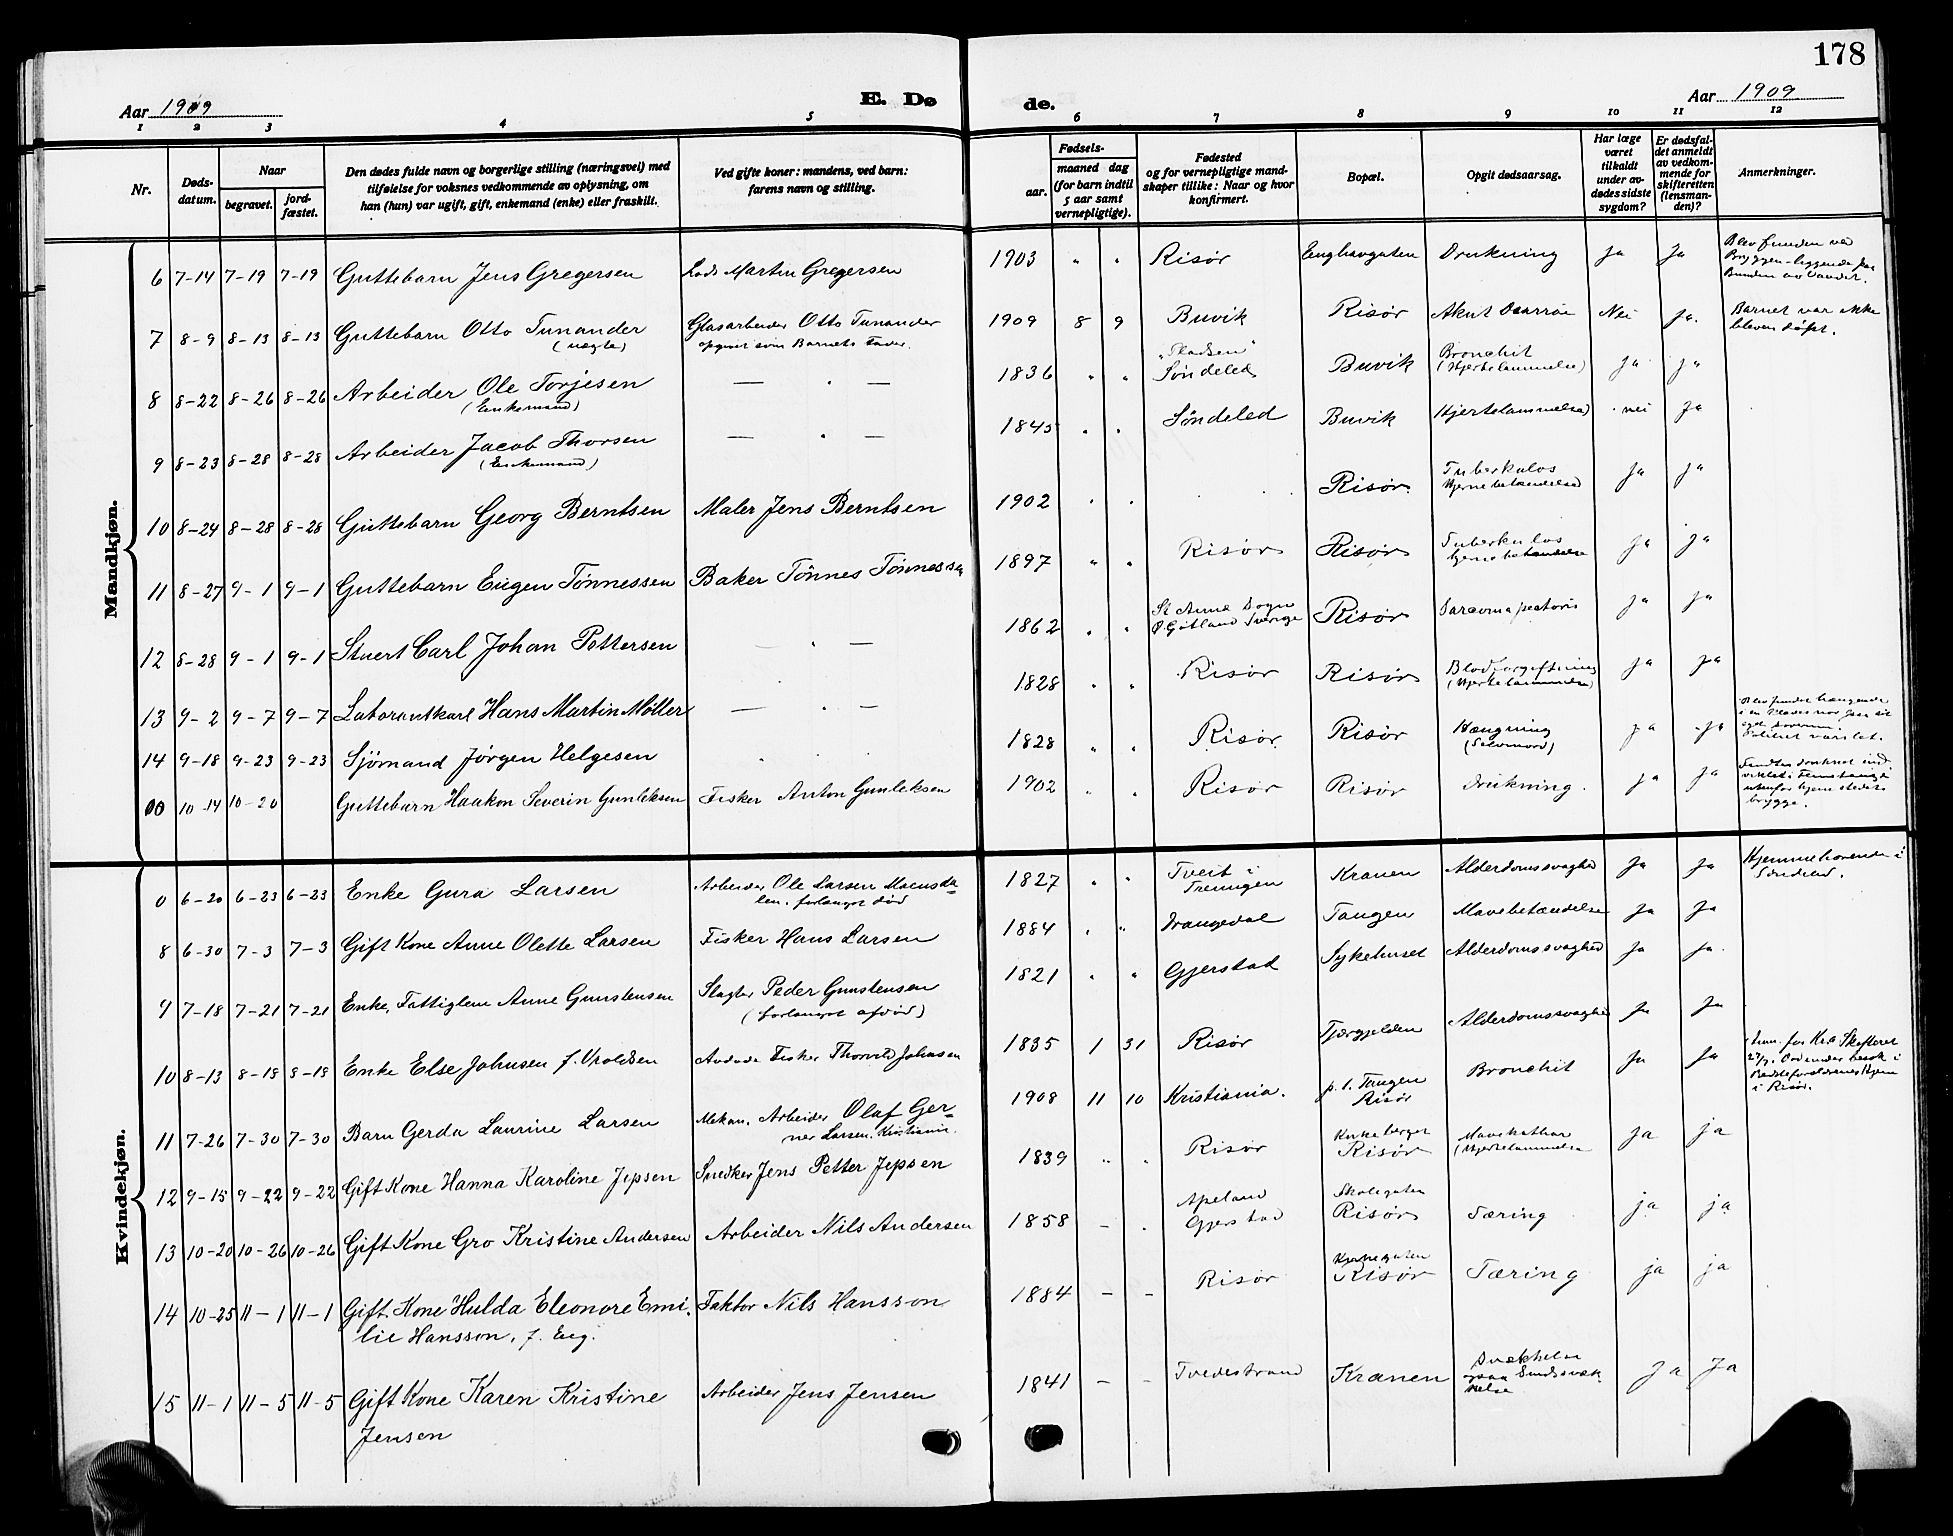 178
Aar 1909
E. Dø
de.
Aar 1909
1 2 3 4 5 6 7 8 9 10 11 12
Nr.
Døds-
datum.
Naar
begravet.
jord-
fæstet.
Den dødes fulde navn og borgerlige stilling (næringsvei) med
tilføielse for voksnes vedkommende av oplysning, om
han (hun) var ugift, gift, enkemand (enke) eller fraskilt.
Ved gifte koner: mandens, ved barn:
farens navn og stilling.
Fødsels-
aar.
maaned dag
(for barn indtil
5 aar samt
vernepligtige).
Fødested
og for vernepligtige mand-
skaper tillike: Naar og hvor
konfirmert.
Bopæl.
Opgit dødsaarsag.
Har læge
været
tilkaldt
under av-
dødes sidste
sygdom?
Er dødsfal-
det anmeldt
av vedkom-
mende for
skifteretten
(lensman-
den)?
Anmerkninger.
Mandkjøn.
6 7-14 7-19 7-19 Guttebarn Jens Gregersen Lods Martin Gregersen 1903 " " Risør Enghavgaten Drukning Ja Ja Blev funden ved
Bryggen - liggende paa
Bunden av Vandet.
7 8-9 8-13 8-13 Guttebarn Otto Tunander Glasarbeider Otto Tunander 1909 8 9 Buvik Risør Akut Diarrøe Nei Ja. Barnet var ikke
(uægte) opgivet som Barnets Fader. bleven døpt.
8 8-22 8-26 8-26 Arbeider Ole Torjesen — " — 1836 " " "Pladsen" Søndeled Buvik Bronchit Ja Ja
(Enkemand) (Hjertelammelse)
9 8-23 8-28 8-28 Arbeider Jacob Thorsen — " — 1845 " " Søndeled Buvik Hjertelammelse nei Ja
(Enkemand)
10 8-24 8-28 8-28 Guttebarn Georg Berntsen Maler Jens Berntsen 1902 " " Risør. Tuberkuløs Ja Ja
Hjernebetændelse
11 8-27 9-1 9-1 Guttebarn Eugen Tønnessen Baker Tønnes Tønnessen 1897 " " Risør Risør Tuberkuløs Ja Ja
hjernebetændelse
12 8-28 9-1 9-1 Stuert Carl Johan Pettersen " — 1862 " " St Anna Sogn Risør Sarcoma pectoris Ja Ja
Ø. Gøtland Sverige
13 9-2 9-7 9-7 Laborantkarl Hans Martin Møller — " — 1828 " " Risør Risør Blodforgiftning Ja Ja
(Hjertelammelse)
14 9-18 9-23 9-23 Sjømand Jørgen Helgesen 1828 " " Risør Risør Hængning Ja Ja Blev fundet hængende
(Selvmord)
Politiet varslet.
00 10-14 10-20 Guttebarn Haakon Severin Gunleksen Fisker Anton Gunleksen 1902 " " Risør Risør Drukning. Ja Ja Fandtes druknet ind-
utenfor hjemstedets
brygge.
Kvindekjøn.
0 6-20 6-23 6-23 Enke Gura Larsen Arbeider Ole Larsen Moensda- 1827 " " Tveit i Kranen Alderdomssvaghed Ja Ja Hjemmehørende i
len. forlængst død Treungen Søndeled.
8 6-30 7-3 7-3 Gift Kone Anne Olette Larsen Fisker Hans Larsen 1884 " " Drangedal Tangen Mavebetændelse Ja Ja
9 7-18 7-21 7-21 Enke, Fattiglem Anne Gunstensen Slagter Peder Gunstensen 1821 " " Gjerstad Sykehuset Alderdomssvaghed Ja Ja.
(forlængst afdød)
10 8-13 8-18 8-18 Enke Else Johnsen f. Avdøde Fisker Thorvald Johnsen 1835 1 31 Risør Tjærgjelden Alderdomssvaghed Ja Ja
11 7-26 7-30 7-30 Barn Gerda Laurine Larsen Mekan. Arbeider Olaf Ger- 1908 11 10 Kristiania. p. t. Tangen Bronchit Ja Ja Anm. for Kr.a Skifteret
ner Larsen, Kristiania. Risør 27/7. Død under besøk i
Bedsteforældrenes Hjem
i Risør.
12 9-15 9-22 9-22 Gift Kone Hanna Karoline Jepsen Snedker Jens Petter Jepsen 1839 " " Risør Kirkeberget Mavekathar Ja Ja
Risør (Hjertelammelse
13 10-20 10-26 10-26 Gift Kone Gro Kristine Andersen Arbeider Nils Andersen 1858 — " Apeland Skolegaten Tæring ja ja
Gjerstad Risør
14 10-25 11-1 11-1 Gift. Kone Hulda Eleonore Emi- Faktor Nils Hansson 1884 — — Risør Risør Tæring ja ja
lie Hansson, f. Eng.
15 11-1 11-5 11-5 Gift Kone Karen Kristine Arbeider Jens Jensen 1841 — — Tvedestrand Kranen Ja Ja
Jensen